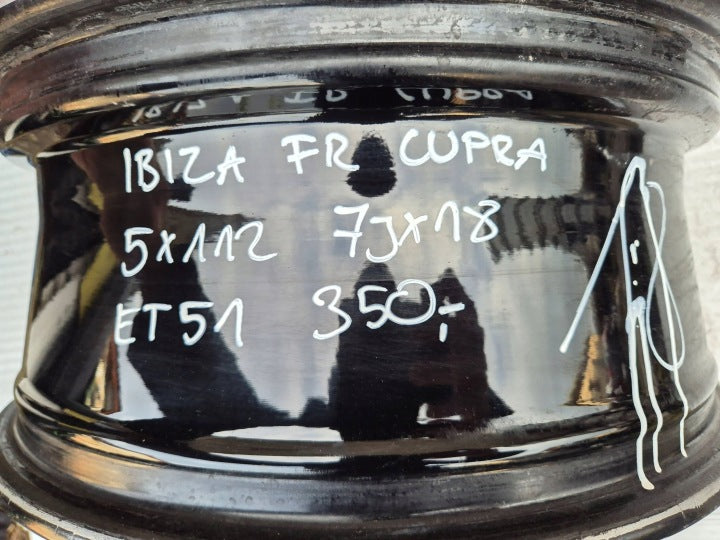 IBIZA FR CUPRA
5X112 7JX18
ET51 350,-
18